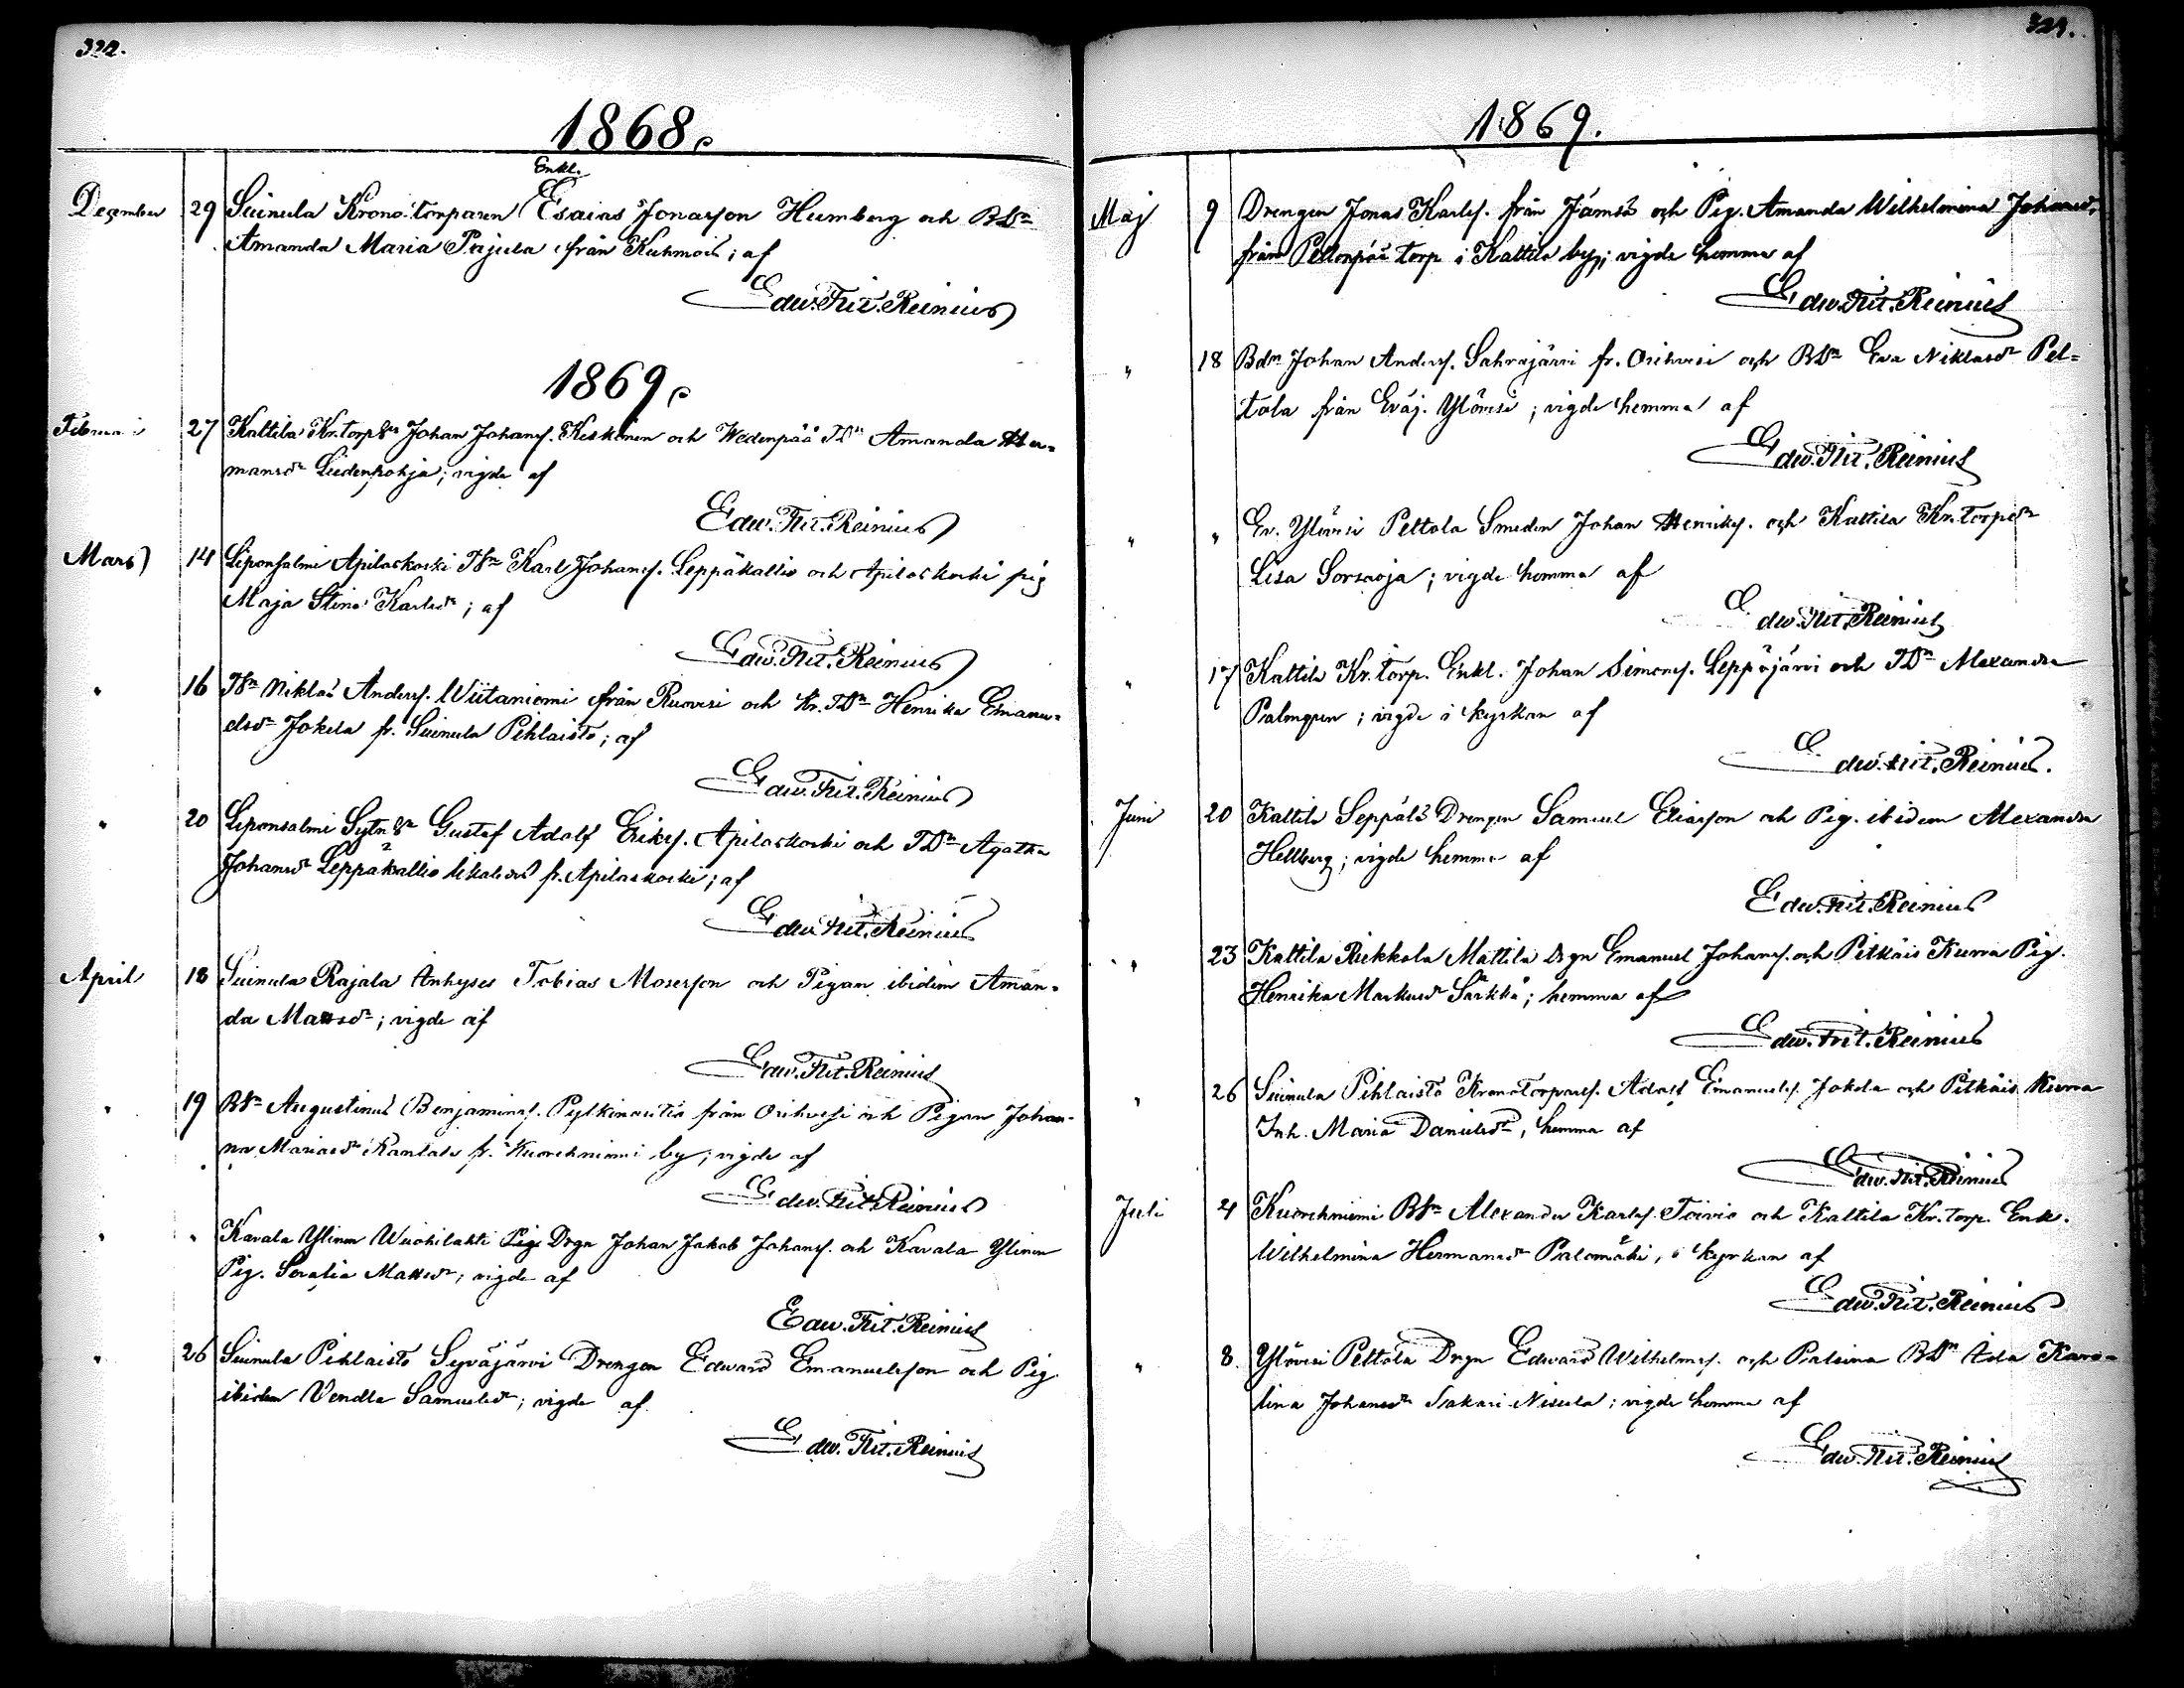 322.
1868.
Enkl.
December 29 Suinula Krono torparen Esaias Jonasson Humberg och BDr
Amanda Maria Pajula från Kuhmois; af
Edw. Frit. Reinius
1869.
Februari 27 Kattila Kr. torpsn Johan Johansf. Keskinen och Wedenpää TDr Amanda Her-
mansdr Liedenpohja; vigde af
Edw. Frit. Reinius
Mars 14 Liponsalmi Apilaskoski TSn Karl Johansf. Leppäkallio och Apilaskoski pig
Maja Stina Karlsdr; af
Edw. Frit. Reinius
" 16 TSn Niklas Andersf. Wiitaniemi från Ruovesi och Kr. TDr Henrika Emanu-
elsdr Jokela fr. Suinula Pihlaisto; af
Edw. Frit. Reinius
" 20 Liponsalmi Sytnsn Gustaf Adolf Eriksf. Apilaskoski och TDr Agatha
Johansdr Leppäkallio likaledes fr. Apilaskoski; af
Edw. Frit. Reinius
April 18 Suinula Rajala Inhyses Tobias Mosesson och Pigan ibidem Aman-
da Mattsdr; vigde af
Edw. Frit. Reinius
" 19 BSn Augustinus Benjaminsf. från Orihvesi och Pigan Johan-
na Mariasdr Rantala fr. Kuorehniemi by; vigde af
Edw. Frit. Reinius
" " Kavala Ylinen Wuohilahti Drgn Johan Jakob Johansf. och Kavala Ylinen
Pig. Serafia Mattsdr; vigde af
Edw. Frit. Reinius
" 26 Suinula Pihlaisto Syväjärvi Drengen Edward Emanuelsson och Pig.
ibidem Vendla Samuelsdr; vigde af
Edw. Frit. Reinius
1869.
Maj 9 Drengen Jonas Karlsf. från Jämsä och Pig. Amanda Wilhelmina Johansdr
från Pellonpää torp i Kattila by; vigde hemma af
Edw. Frit. Reinius
" 18 Bdsn Johan Andersf. Sahrajärvi fr. Orihvesi och BDr Eva Niklasdr Pel-
tola från Eräj. Ylönsi; vigde hemma af
Edw. Frit. Reinius
" " Er. Ylönsi Peltola Smeden Johan Henriksf. och Kattila Kr. torpdr
Lisa Sorsaoja; vigde hemma af
Edw. Frit. Reinius
" 17 Kattila Kr. torp. Enkl. Johan Simonsf. Leppäjärvi och TDr Alexandra
Palmgren; vigde i kyrkan af
Edw. Frit. Reinius.
Juni 20 Kattila Seppälä Drengen Samuel Eliasson och Pig. ibidem Alexandra
Hellberg; vigde hemma af
Edw. Frit. Reinius
" 23 Kattila Riekkola Mattila Drgn Emanuel Johansf. och Pitkäis Kurva Pig.
Henrika Markusdr Särkkä; hemma af
Edw. Frit. Reinius
" 26 Suinula Pihlaisto Kronotorparef. Adolf Emanuelsf. Jokela och Pitkäis Kurva
Inh. Maria Danielsdr, hemma af
Edw. Frit. Reinius
Juli 4 Kuorehniemi BSn Alexander Karlsf. Toivio och Kattila Kr. torp. Enk.
Wilhelmina Hermansdr Palomäki, i kyrkan af
Edw. Frit. Reinius
" 8 Ylönsi Peltola Drgn Edward Wilhelmsf. och Palsina BDr Ida Karo-
lina Johansdr Isakari Nisula; vigde hemma af
Edw. Frit. Reinius